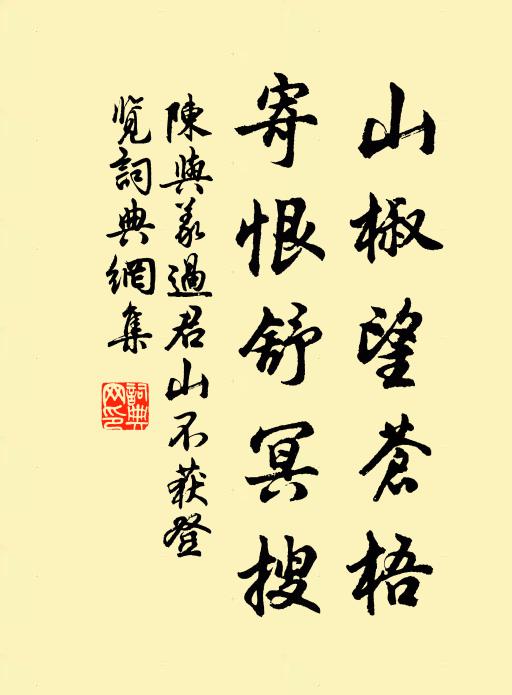 山椒望蒼梧
寄恨舒冥搜
陳與義過君山不获登
覽詞典網集
詞典
网印